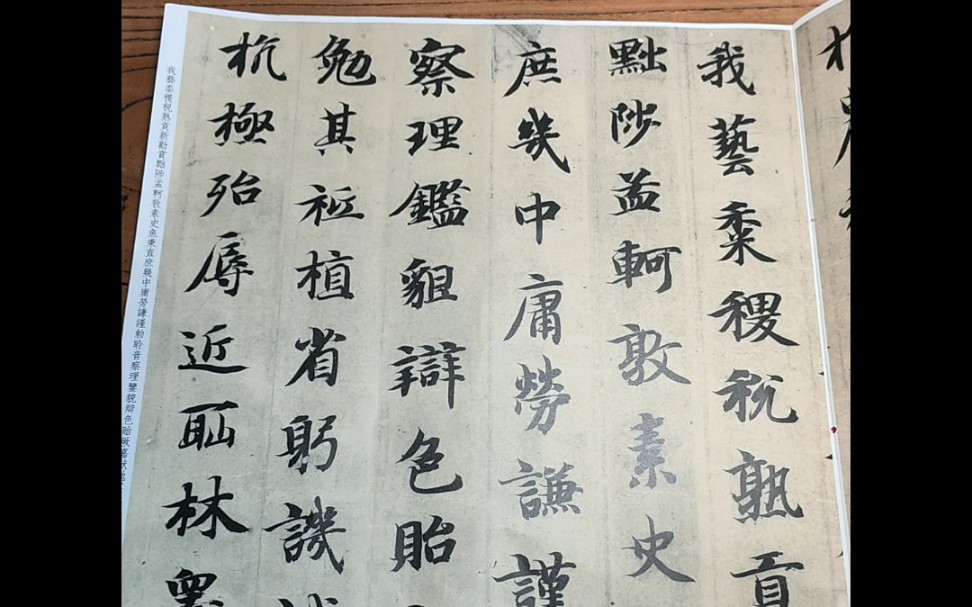 我藝黍稷稅熟貢
黜陟孟軻敦素史
庶幾中庸勞謙謹
察理鑑貌辯色貽
勉其祗植省躬譏
抗極殆辱近恥林
我藝黍稷稅熟貢新勸賞黜陟孟軻敦素史魚秉直庶幾中庸勞謙謹勅聆音察理鑒貌辯色貽厥嘉猷